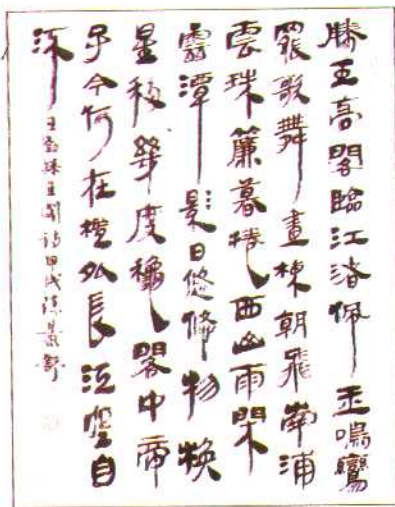 滕王高閣臨江渚佩玉鳴鸞
罷歌舞畫棟朝飛南浦
雲珠簾暮捲西山雨閑
雲潭影日悠悠物換
星移幾度穐閣中帝
子今何在檻外長江空自
流
王勃滕王閣詩甲戌陳景舒